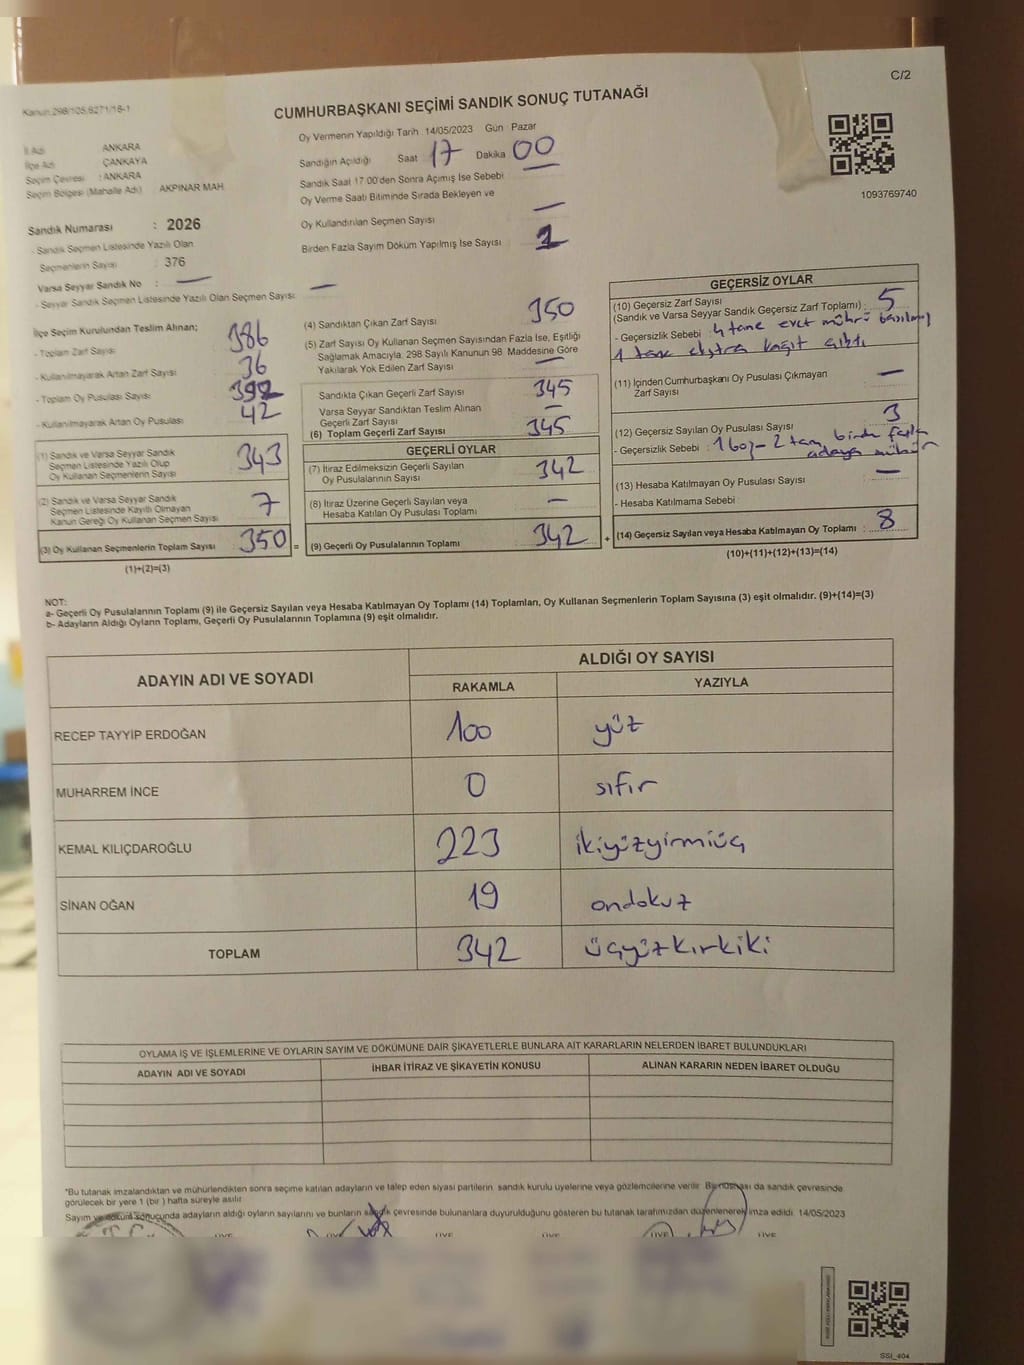 C/2
Kanun:298/105,6271/16-1
CUMHURBAŞKANI SEÇİMİ SANDIK SONUÇ TUTANAĞI
1093769740
İl Adı ANKARA
İlçe Adı ÇANKAYA
Seçim Çevresi : ANKARA
Seçim Bölgesi (Mahalle Adı) AKPINAR MAH.
Sandık Numarası : 2026
- Sandık Seçmen Listesinde Yazılı Olan
Seçmenlerin Sayısı : 376
Varsa Seyyar Sandık No : —
- Seyyar Sandık Seçmen Listesinde Yazılı Olan Seçmen Sayısı: —
Oy Vermenin Yapıldığı Tarih 14/05/2023 Gün Pazar
Sandığın Açıldığı Saat 17 Dakika 00
Sandık Saat 17.00'den Sonra Açımış İse Sebebi
Oy Verme Saati Bitiminde Sırada Bekleyen ve
Oy Kullandırılan Seçmen Sayısı —
Birden Fazla Sayım Döküm Yapılmış İse Sayısı 1
İlçe Seçim Kurulundan Teslim Alınan;
- Toplam Zarf Sayısı 386
- Kullanılmayarak Artan Zarf Sayısı 36
- Toplam Oy Pusulası Sayısı 392
- Kullanılmayarak Artan Oy Pusulası 42
(1) Sandık ve Varsa Seyyar Sandık
Seçmen Listesinde Yazılı Olup
Oy Kullanan Seçmenlerin Sayısı 343
(2) Sandık ve Varsa Seyyar Sandık
Seçmen Listesinde Kayıtlı Olmayan
Kanun Gereği Oy Kullanan Seçmen Sayısı 7
(3) Oy Kullanan Seçmenlerin Toplam Sayısı 350
(1)+(2)=(3)
(4) Sandıktan Çıkan Zarf Sayısı 350
(5) Zarf Sayısı Oy Kullanan Seçmen Sayısından Fazla İse, Eşitliği
Sağlamak Amacıyla, 298 Sayılı Kanunun 98. Maddesine Göre
Yakılarak Yok Edilen Zarf Sayısı —
Sandıkta Çıkan Geçerli Zarf Sayısı 345
Varsa Seyyar Sandıktan Teslim Alınan
Geçerli Zarf Sayısı —
(6) Toplam Geçerli Zarf Sayısı 345
GEÇERLİ OYLAR
(7) İtiraz Edilmeksizin Geçerli Sayılan
Oy Pusulalarının Sayısı 342
(8) İtiraz Üzerine Geçerli Sayılan veya
Hesaba Katılan Oy Pusulası Toplamı —
= (9) Geçerli Oy Pusulalarının Toplamı 342
GEÇERSİZ OYLAR
(10) Geçersiz Zarf Sayısı
(Sandık ve Varsa Seyyar Sandık Geçersiz Zarf Toplamı) : 5
- Geçersizlik Sebebi : 4 tane evet mührü basılmış
1 tane ekstra kağıt çıktı
(11) İçinden Cumhurbaşkanı Oy Pusulası Çıkmayan
Zarf Sayısı —
(12) Geçersiz Sayılan Oy Pusulası Sayısı 3
- Geçersizlik Sebebi : 1 boş - 2 tane birden fazla
adaya mühür
(13) Hesaba Katılmayan Oy Pusulası Sayısı —
- Hesaba Katılmama Sebebi
+ (14) Geçersiz Sayılan veya Hesaba Katılmayan Oy Toplamı : 8
(10)+(11)+(12)+(13)=(14)
NOT:
a- Geçerli Oy Pusulalarının Toplamı (9) ile Geçersiz Sayılan veya Hesaba Katılmayan Oy Toplamı (14) Toplamları, Oy Kullanan Seçmenlerin Toplam Sayısına (3) eşit olmalıdır. (9)+(14)=(3)
b- Adayların Aldığı Oyların Toplamı, Geçerli Oy Pusulalarının Toplamına (9) eşit olmalıdır.
ADAYIN ADI VE SOYADI ALDIĞI OY SAYISI
RAKAMLA YAZIYLA
RECEP TAYYİP ERDOĞAN 100 yüz
MUHARREM İNCE 0 sıfır
KEMAL KILIÇDAROĞLU 223 ikiyüzyirmiüç
SİNAN OĞAN 19 ondokuz
TOPLAM 342 üçyüzkırkiki
OYLAMA İŞ VE İŞLEMLERİNE VE OYLARIN SAYIM VE DÖKÜMÜNE DAİR ŞİKAYETLERLE BUNLARA AİT KARARLARIN NELERDEN İBARET BULUNDUKLARI
ADAYIN ADI VE SOYADI İHBAR İTİRAZ VE ŞİKAYETİN KONUSU ALINAN KARARIN NEDEN İBARET OLDUĞU
*Bu tutanak imzalandıktan ve mühürlendikten sonra seçime katılan adayların ve talep eden siyasi partilerin, sandık kurulu üyelerine veya gözlemcilerine verilir. Bir nüshası da sandık çevresinde
görülecek bir yere 1 (bir ) hafta süreyle asılır.
Sayım ve döküm sonucunda adayların aldığı oyların sayılarını ve bunların sandık çevresinde bulunanlara duyurulduğunu gösteren bu tutanak tarafımızdan düzenlenerek imza edildi. 14/05/2023
T.C.
ÜYE ÜYE ÜYE ÜYE ÜYE ÜYE
SSI_404